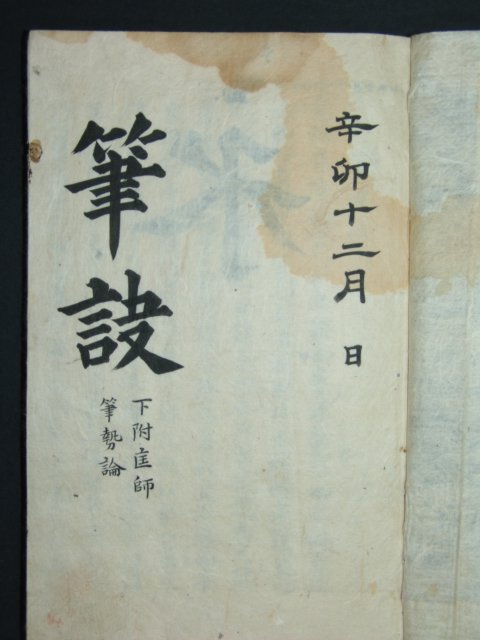 辛卯十二月 日
筆訣
下附匡師
筆勢論